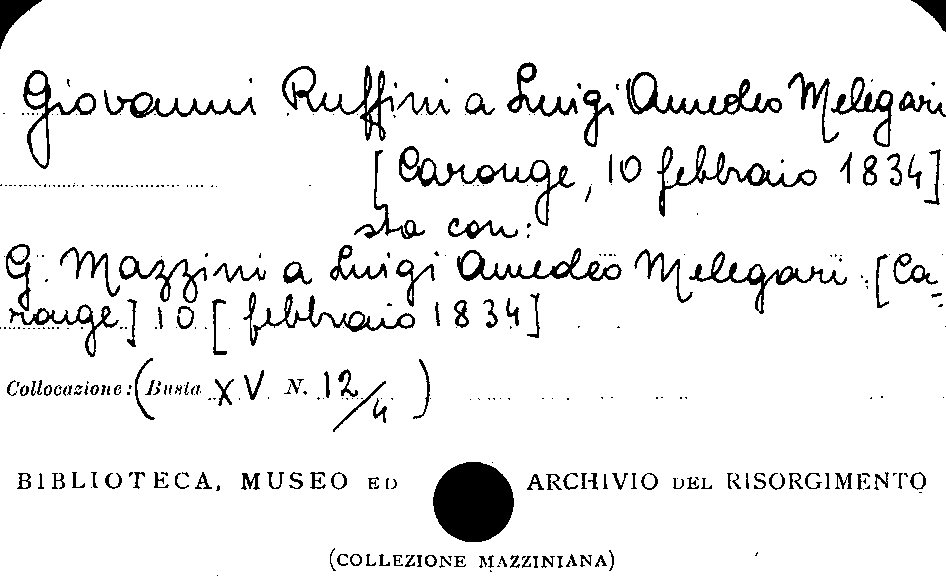 Giovanni Ruffini a Luigi Amedeo Melegari
[Carouge, 10 febbraio 1834]
sta con:
G. Mazzini a Luigi Amedeo Melegari. [Ca-
rouge] 10 [febbraio 1834]
Collocazione: (Busta XV N. 12/4)
BIBLIOTECA, MUSEO ED ARCHIVIO DEL RISORGIMENTO
(COLLEZIONE MAZZINIANA)